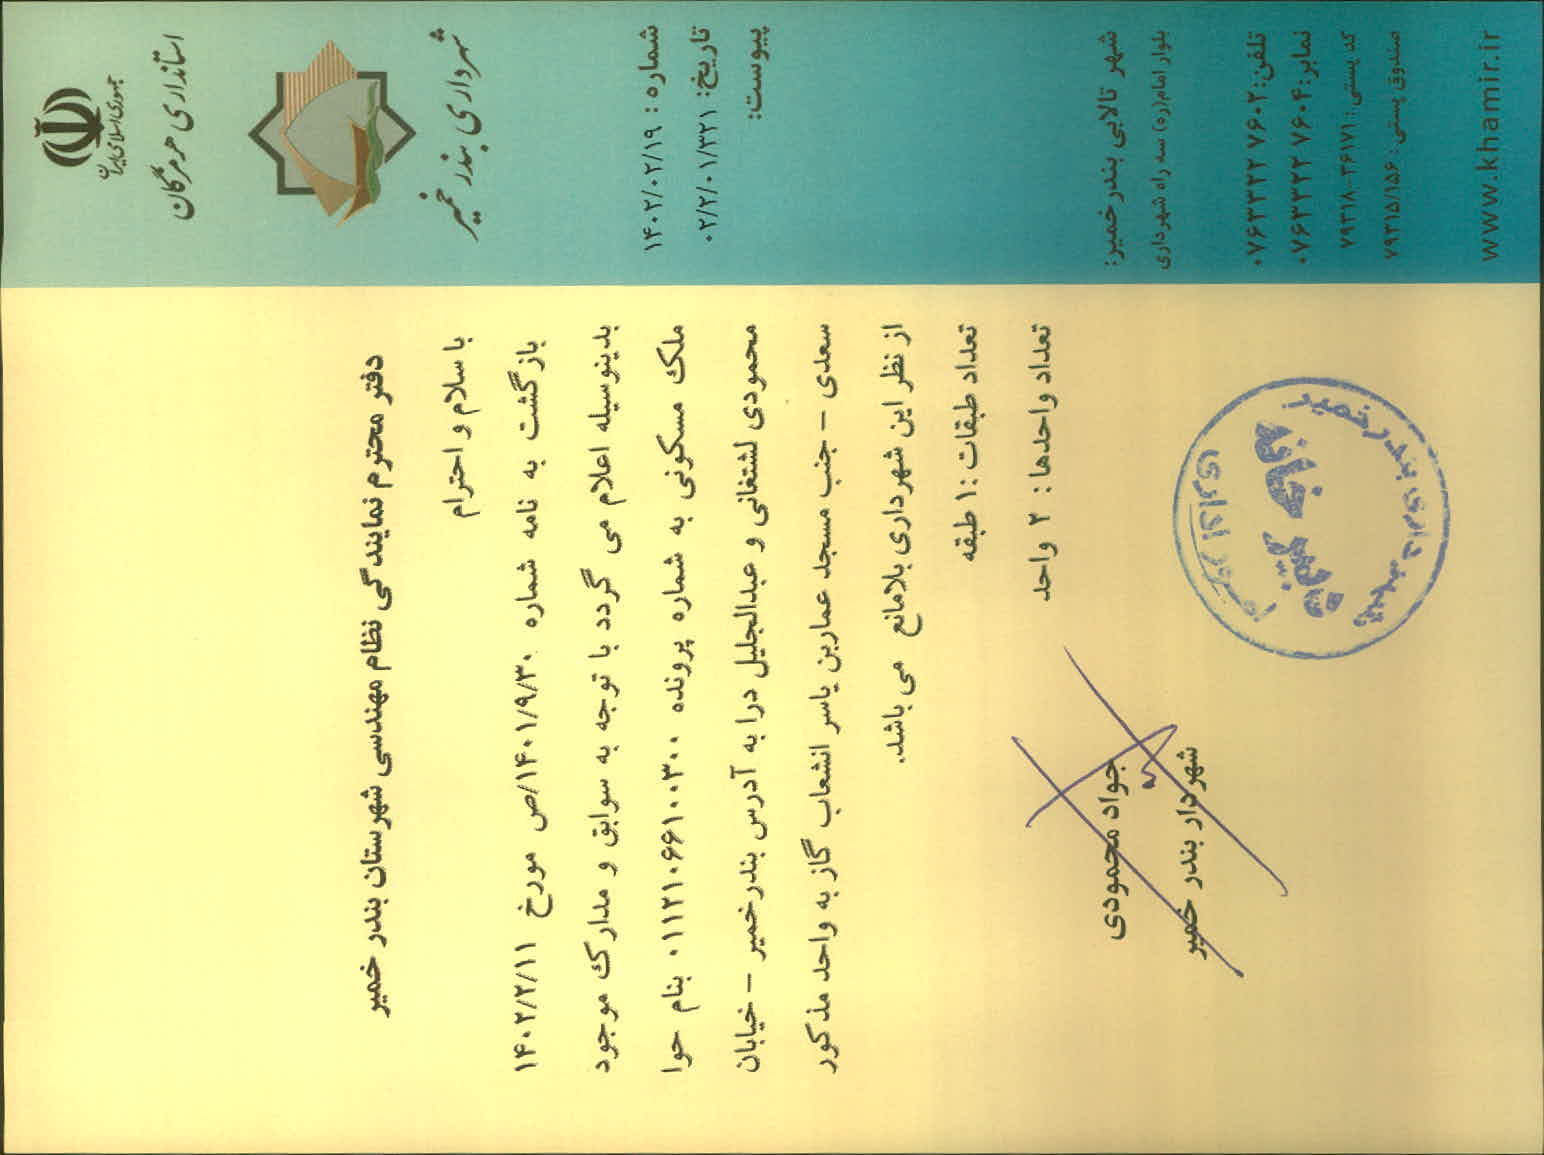 جمهوری اسلامی ایران
استانداری هرمزگان
شهرداری بندر خمیر
شماره: ۱۴۰۲/۰۲/۱۹
تاریخ: ۰۲/۲/۰۱/۳۲۱
پیوست:
دفتر محترم نمایندگی نظام مهندسی شهرستان بندر خمیر
با سلام و احترام
بازگشت به نامه شماره ۱۴۰۱/۹/۳۰/ص مورخ ۱۴۰۲/۲/۱۱
بدینوسیله اعلام می گردد با توجه به سوابق و مدارک موجود
ملک مسکونی به شماره پرونده ۰۱۱۲۱۰۶۶۱۰۰۳۰۰ بنام حوا
محمودی لشتغانی و عبدالجلیل درا به آدرس بندرخمیر – خیابان
سعدی – جنب مسجد عماربن یاسر انشعاب گاز به واحد مذکور
از نظر این شهرداری بلامانع می باشد.
تعداد طبقات :۱ طبقه
تعداد واحدها : ۲ واحد
جواد محمودی
شهردار بندر خمیر
شهرداری بندرخمیر
دبیرخانه
امور اداری
شهر تالابی بندرخمیر:
بلوار امام(ره) سه راه شهرداری
تلفن: ۰۷۶۳۳۳۲۷۶۰۲
نمابر: ۰۷۶۳۳۳۳۷۶۰۴
کد پستی: ۷۹۳۱۸-۳۶۱۷۱
صندوق پستی: ۷۹۳۱۵/۱۵۶
www.khamir.ir